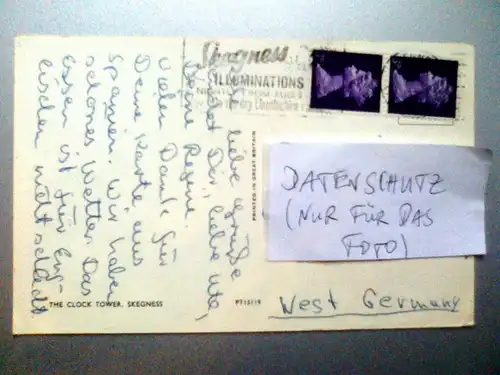 Skegness
ILLUMINATIONS
NIGHTLY FROM
Lincolnshire
liebe Grüße
sendet Dir, liebe Ute,
Deine Regine.
Vielen Dank für
Deine Karte aus
Spanien. Wir haben
schönes Wetter. Das
Essen ist für Eng-
lischen nicht schlecht
PRINTED IN GREAT BRITAIN
DATENSCHUTZ
(NUR FÜR DAS
FOTO)
West Germany
THE CLOCK TOWER, SKEGNESS
PT15119